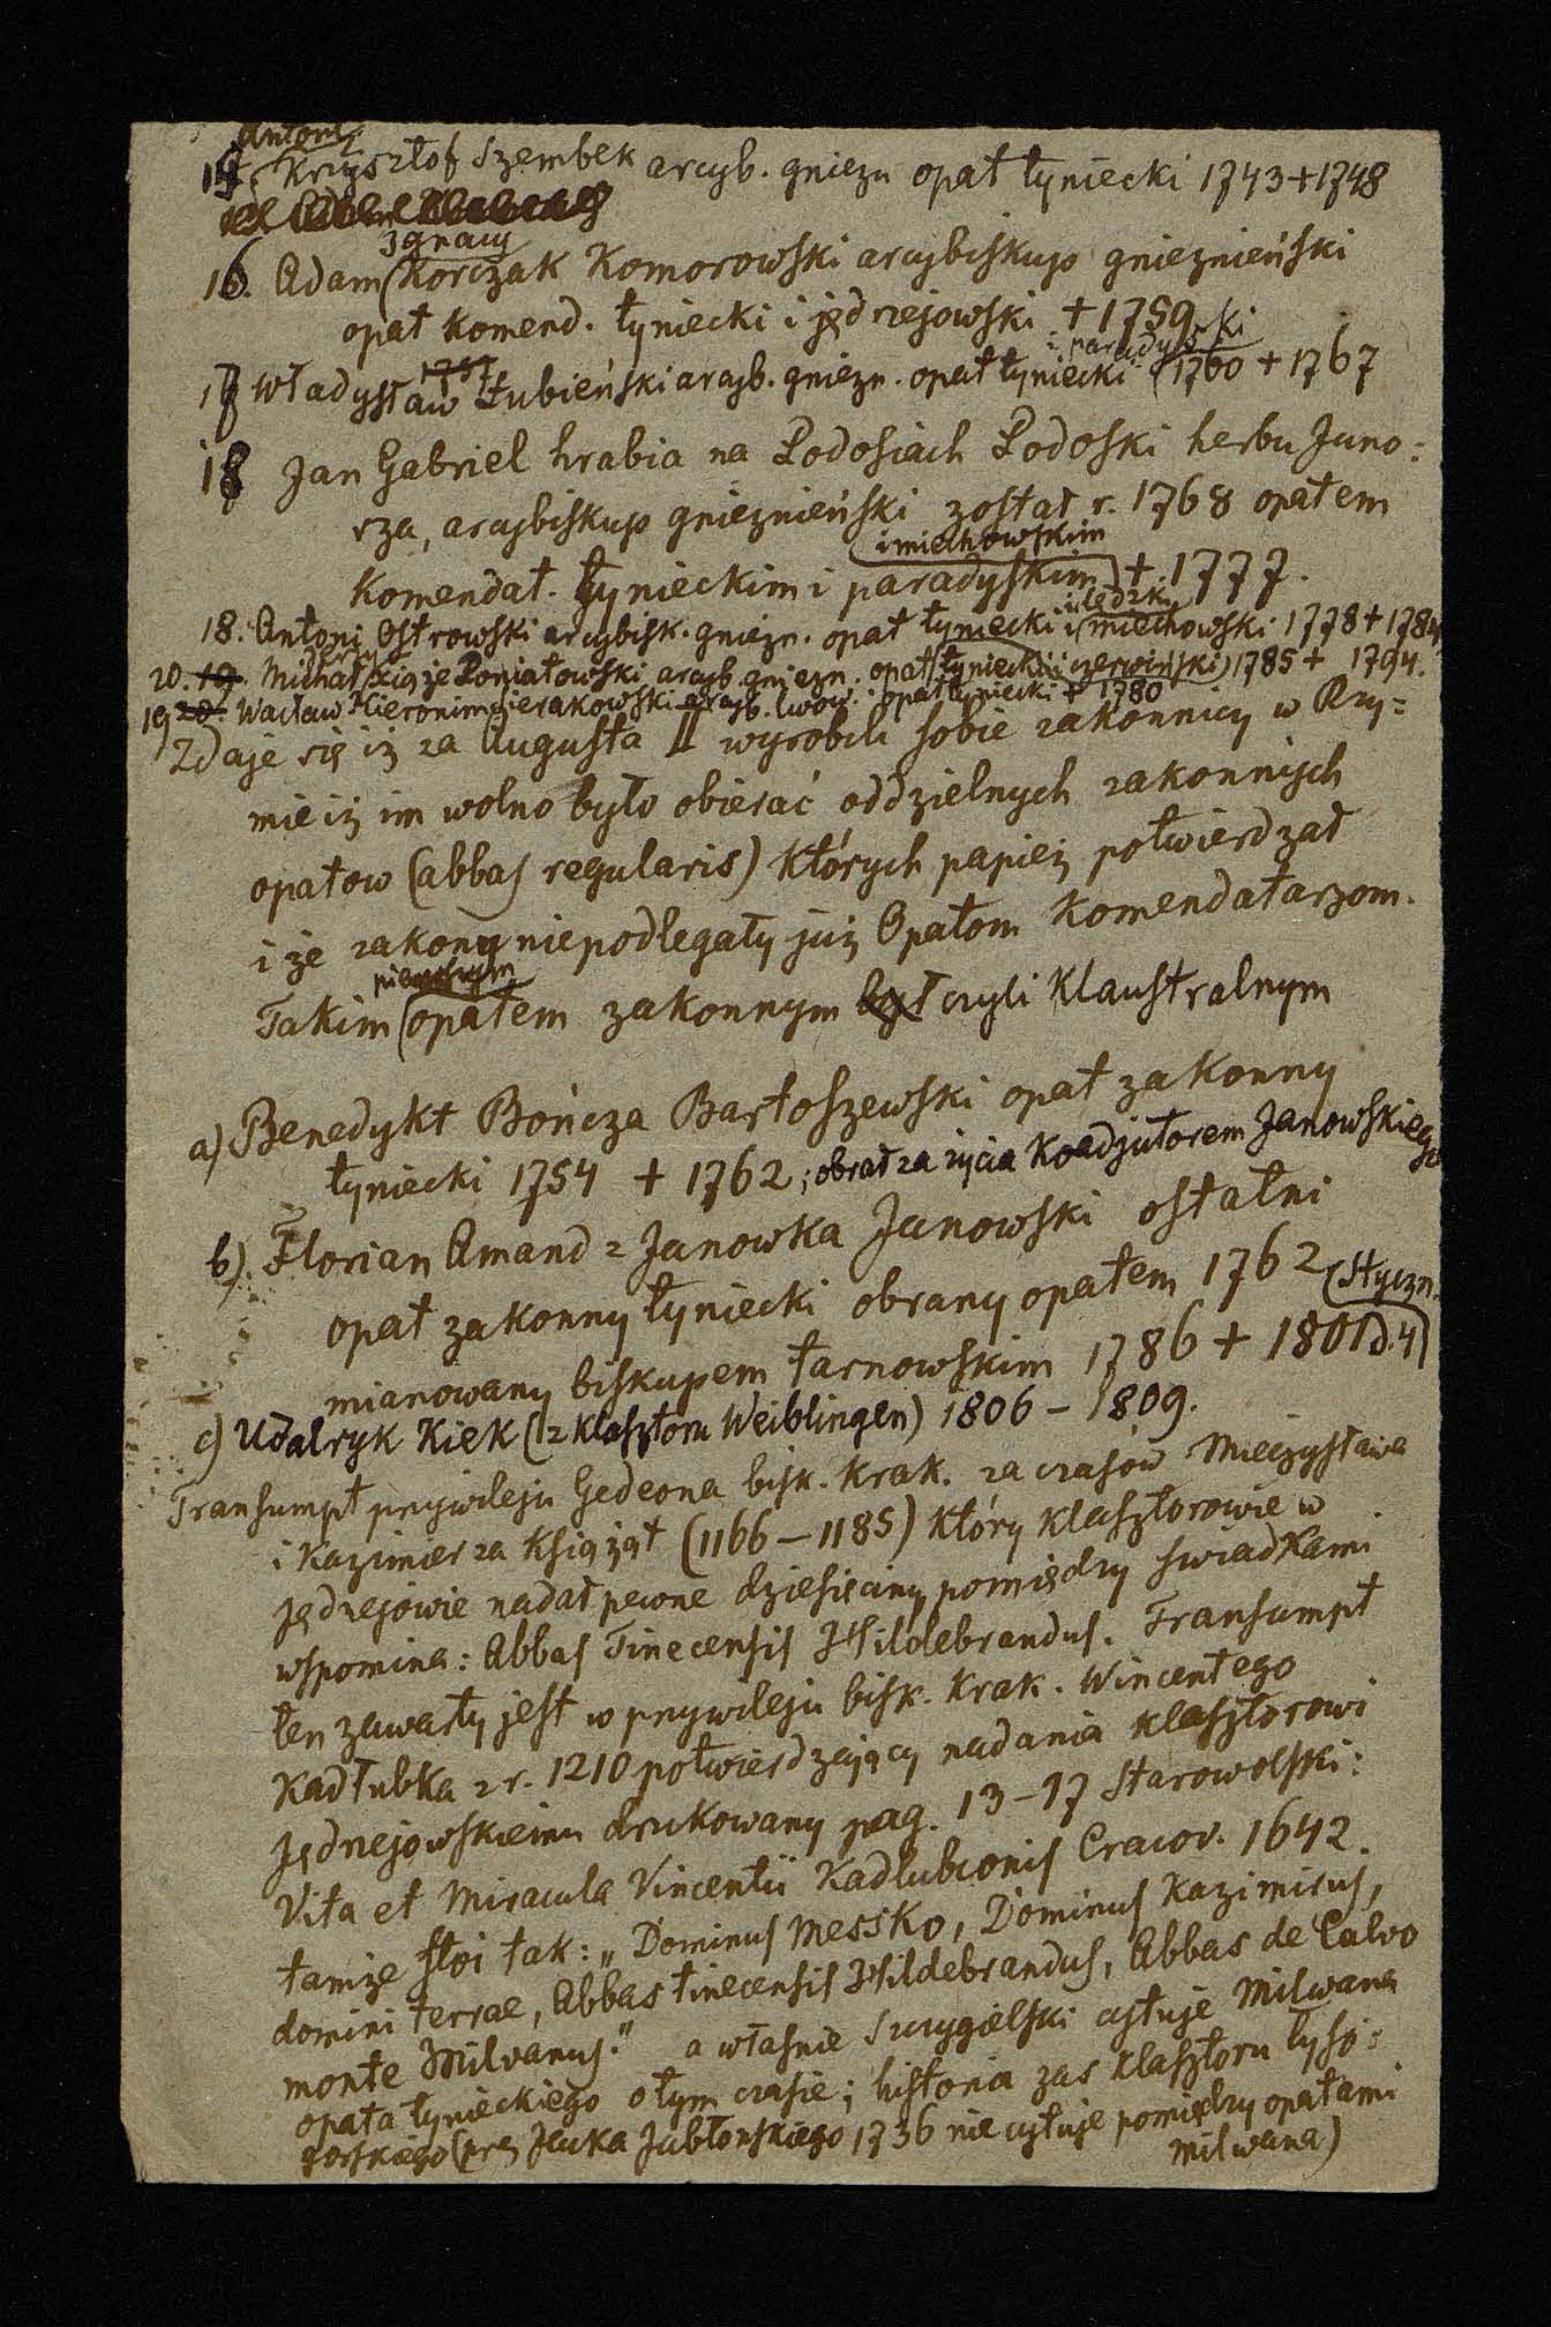 Antoni
15. Krzysztof Szembek arcyb. gniezn opat tyniecki 1743 + 1748
Ignacy
16. Adam Korczak Komorowski arcybiskup gnieznieński
opat komend. tyniecki i jędrzejowski + 1759
i paradyski
17 Władysław Łubieński arcyb. gniezn. opat tyniecki 1760 + 1767
18 Jan Gabriel hrabia na Podosiach Podoski herbu Juno=
rza, arcybiskup gnieznieński został r. 1768 opatem
i miechowskim
komendat. tynieckim i paradyskim + 1777.
i lędzki
18. Antoni Ostrowski arcybisk. gniezn. opat tyniecki i miechowski 1778 + 1784
20. 19. Michał xiąże Poniatowski arcyb. gniezn. opat tyniecki i czerwiński 1785 + 1794.
19 20. Wacław Hieronim Sierakowski arcyb. lwow. opat tyniecki + 1780
Zdaje się iż za Augusta II wyrobili sobie zakonnicy w Rzy=
mie iż im wolno było obierać oddzielnych zakonnych
opatow (abbas regularis) których papież potwierdzał
i że zakony niepodlegały już Opatom Komendatarzom.
pierwszym
Takim opatem zakonnym był czyli klaustralnym
a) Benedykt Bończa Bartoszewski opat zakonny
tyniecki 1754 + 1762; obrał za życia Koadjutorem Janowskiego
b). Florian Amand z Janowka Janowski ostatni
opat zakonny tyniecki obrany opatem 1762
mianowany biskupem tarnowskim 1786 + 1801 (d. 4 Styczn.
c) Udalryk Kiek (z klasztoru Weiblingen) 1806 - 1809.
Transumpt przywileju Gedeona bisk. krak. za czasów Mieczysława
i Kazimierza książąt (1166 - 1185) który klasztorowi w
Jędrzejowie nadał pewne dziesięciny pomiędzy swiadkami
wspomina: Abbas Tinecensis Hildebrandus. Transumpt
ten zawarty jest w przywileju bisk. krak. Wincentego
Kadłubka z r. 1210 potwierdzający nadania klasztorowi
Jędrzejowskiemu drukowany pag. 13 - 17 Starowolski:
Vita et Miracula Vincentii Kadlubconis Cracov. 1642.
tamże stoi tak: „Dominus Messko, Dominus Kazimirus,
domini terrae, Abbas tinecensis Hildebrandus, Abbas de Calvo
monte Milvanus." a własnie Szczygielski cytuje Milwana
opata tynieckiego o tym czasie; historia zas klasztoru łyso=
gorskiego (prz Jacka Jabłonskiego 1736 nie cytuje pomiędzy opatami
Milwana)